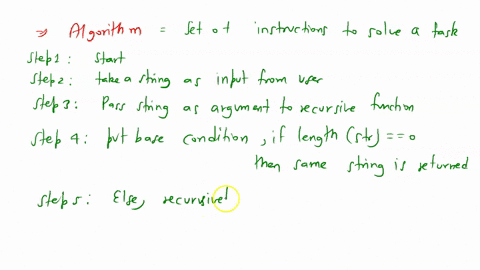 ⇒ Algorithm = Set of instructions to solve a task
Step 1: Start
Step 2: take a string as input from user
Step 3: Pass string as argument to recursive function
Step 4: put base condition, if length (str) == 0
then same string is returned
Step 5: Else, recursivel